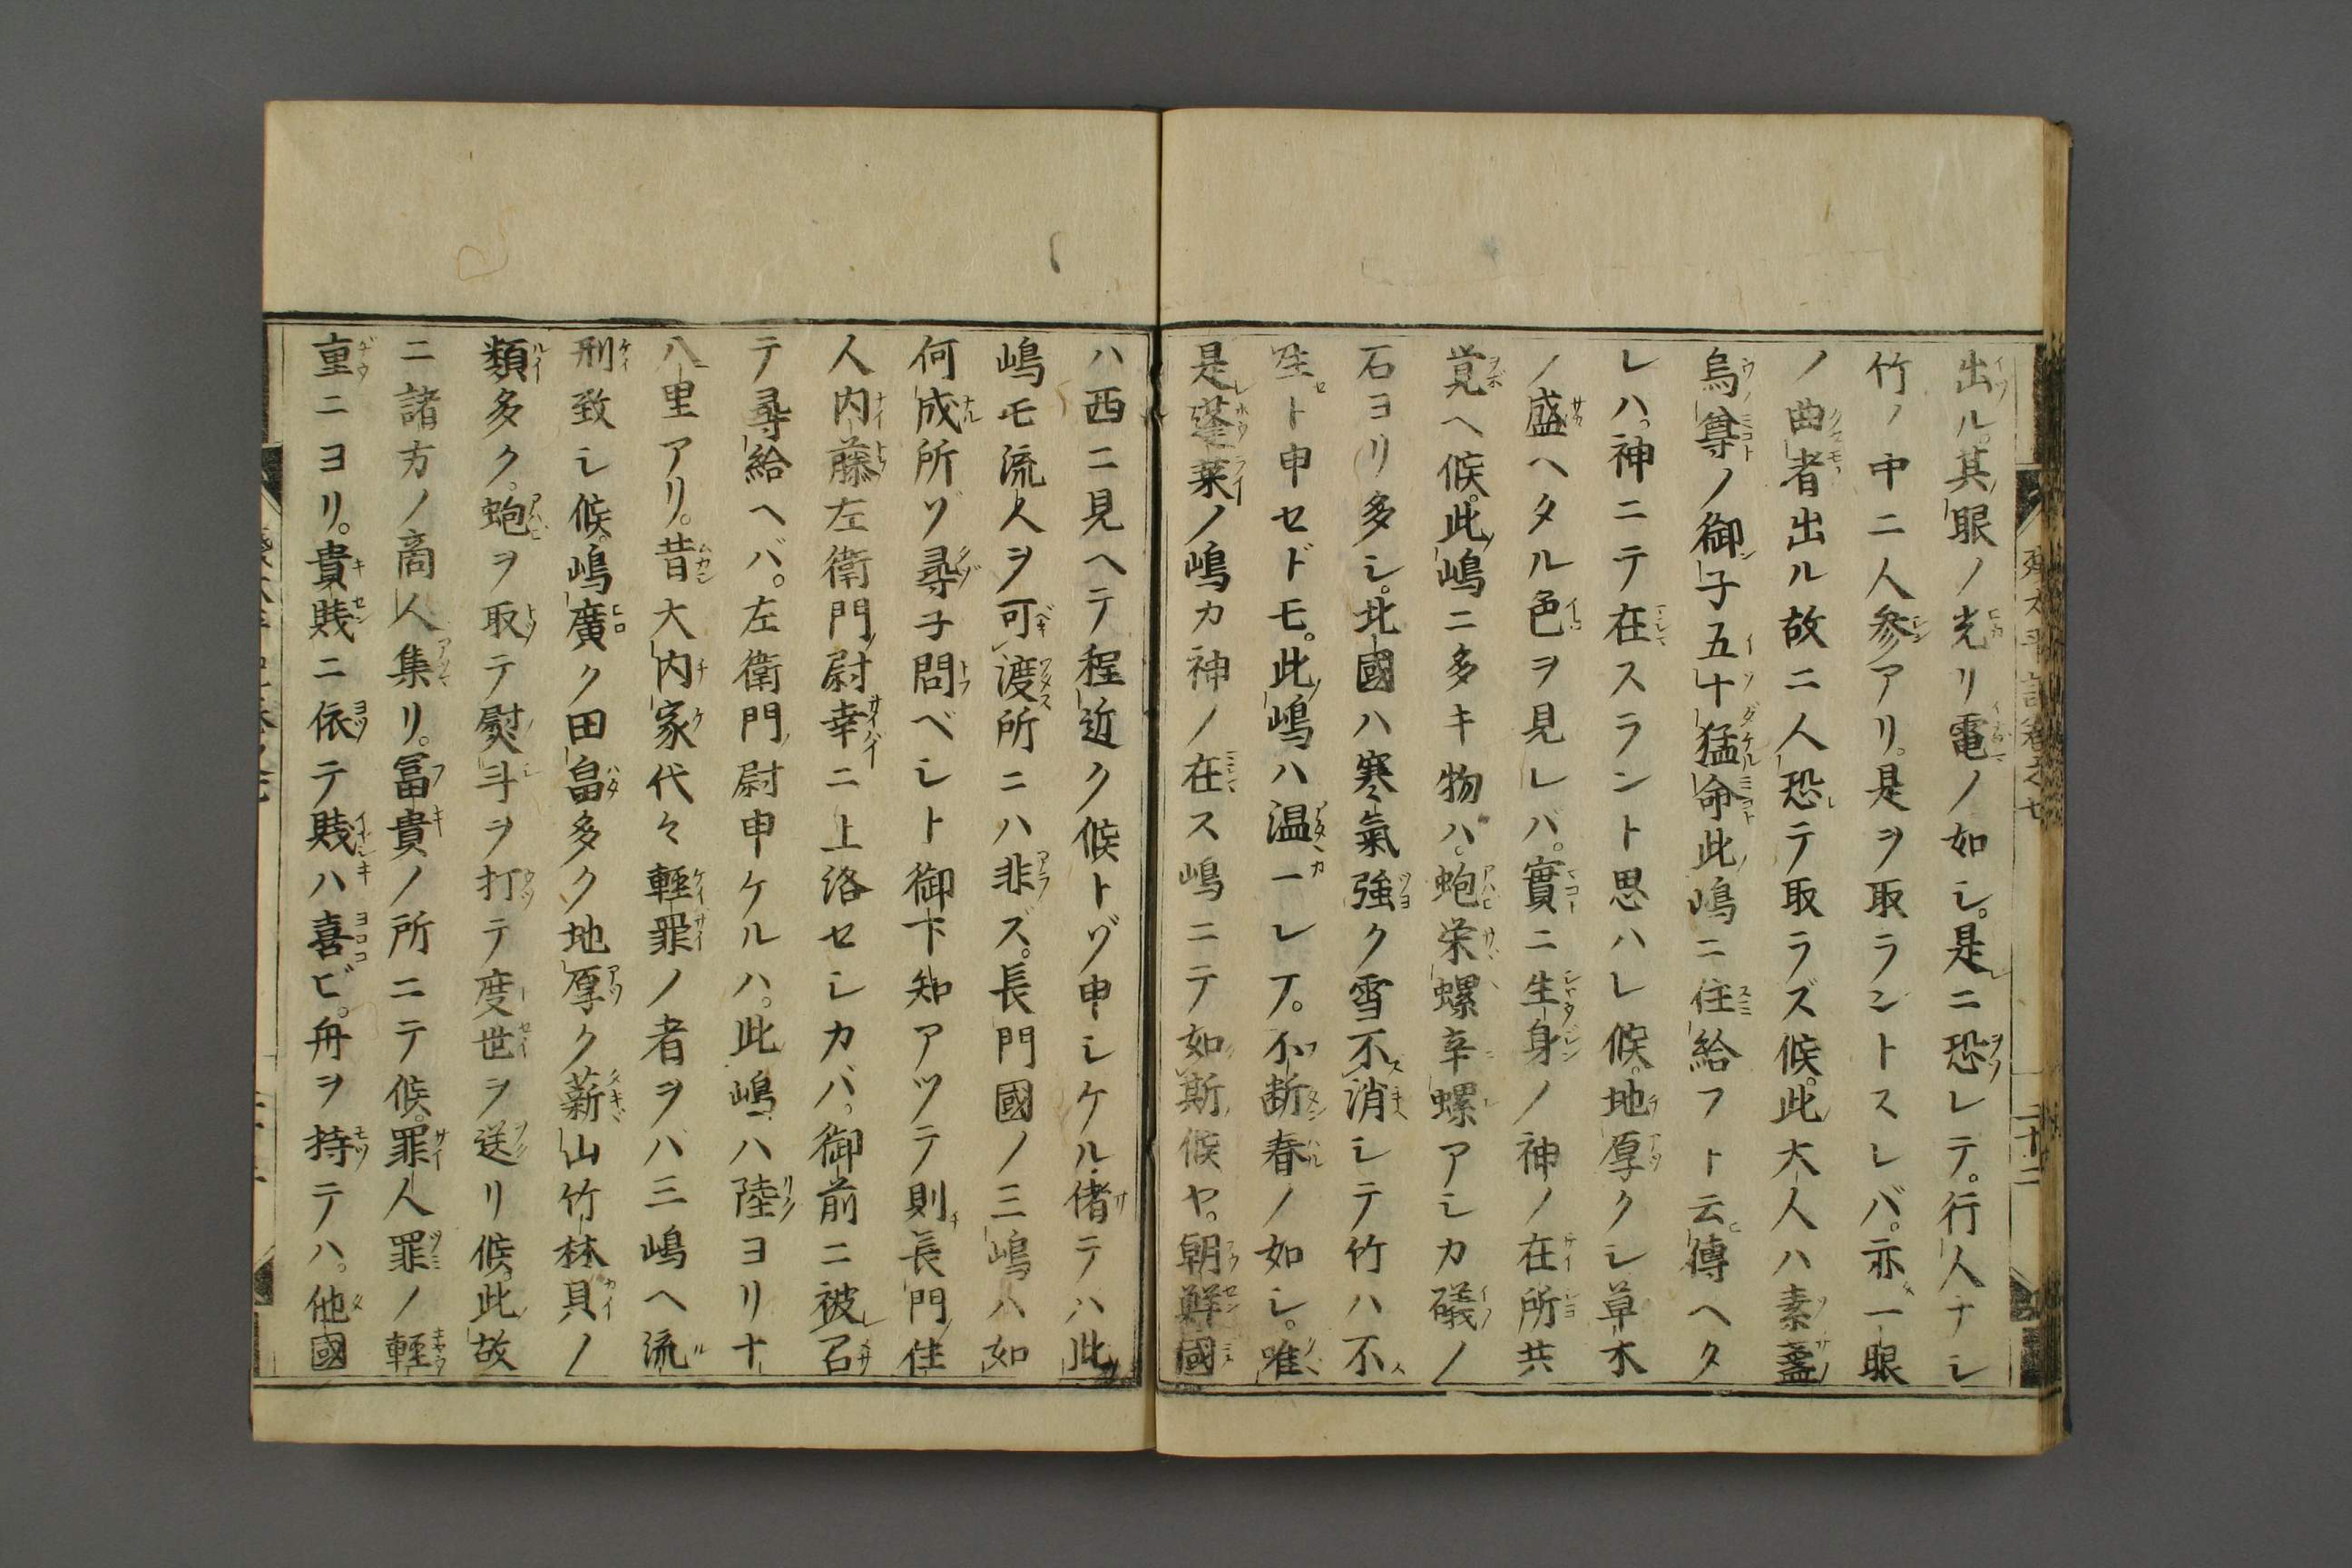 出ル其眼ノ光リ電ノ如シ。是ニ恐レテ。行人ナシ
竹ノ中ニ人参アリ。是ヲ取ラントスレバ。亦一眼
ノ曲者出ル故ニ人恐テ取ラズ候。此大人ハ素盞
烏尊ノ御子五十猛命此嶋ニ住給フト云傳ヘタ
レハ。神ニテ在スラント思ハレ候。地厚クシ草木
ノ盛ヘタル色ヲ見レバ。實ニ生身ノ神ノ在所共
覚ヘ候。此嶋ニ多キ物ハ。蚫栄螺辛螺アシカ礒ノ
石ヨリ多シ。北國ハ寒氣強ク雪不消シテ竹ハ不
生ト申セドモ。此嶋ハ温ーレ𪜈。不断春ノ如シ。唯
是蓬莱ノ嶋カ神ノ在ス嶋ニテ如斯候ヤ。朝鮮國
ハ西ニ見ヘテ程近ク候トゾ申シケル偖テハ此
嶋モ流人ヲ可渡所ニハ非ズ。長門國ノ三嶋ハ如
何成所ゾ尋子問ベシト御下知アツテ則長門住
人内藤左衛門尉幸ニ上洛セシカバ。御前ニ被召
テ尋給ヘバ。左衛門尉申ケルハ。此嶋ハ陸ヨリ十
八里アリ。昔大内家代々軽罪ノ者ヲバ三嶋ヘ流
刑致シ候。嶋廣ク田畠多ク地厚ク薪山竹林貝ノ
類多ク。蚫ヲ取テ熨斗ヲ打テ度世ヲ送リ候。此故
ニ諸方ノ商人集リ。冨貴ノ所ニテ候。罪人罪ノ輕
重ニヨリ。貴賎ニ依テ賎ハ喜ビ。舟ヲ持テハ。他國